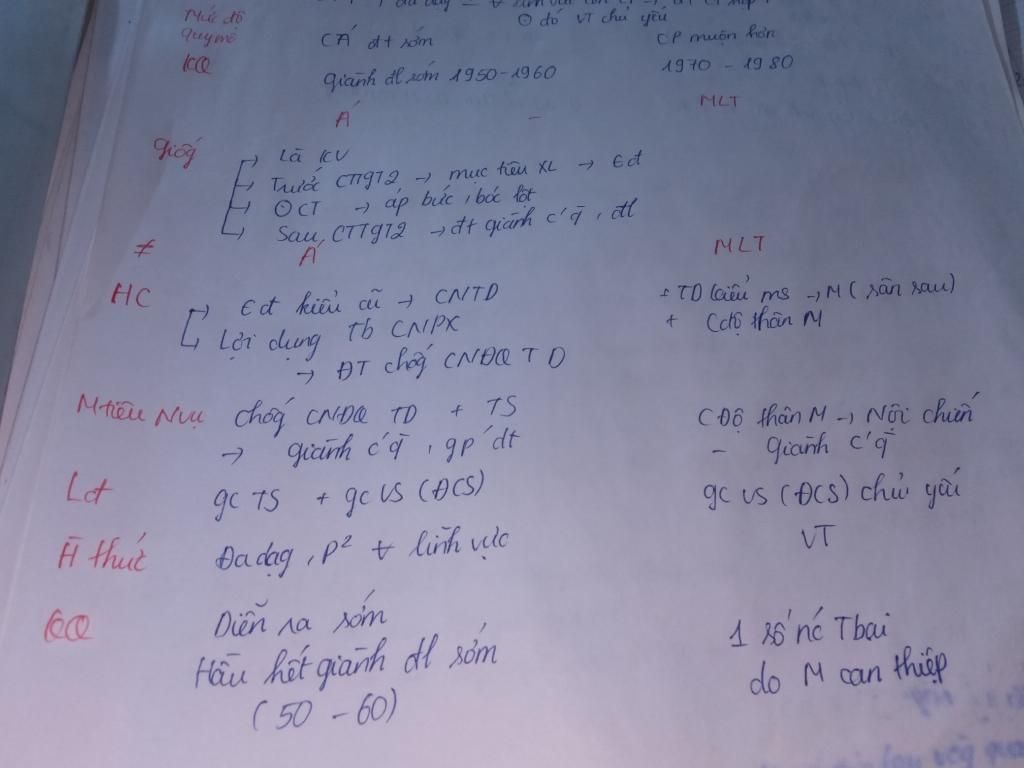 Mức độ
O đó VT chủ yếu
Quy mô CÁ đt sớm CP muộn hơn
KQ giành đl sớm 1950-1960 1970 - 1980
Á - MLT
Giống
→ Là KV
→ Trước CTTGT2 → mục tiêu XL → €đ
→ ʘCT → áp bức, bóc lột
→ Sau CTTGT2 → đt giành c'q̄, đl
≠ Á MLT
HC → €đ kiểu cũ → CNTD + TD kiểu ms → M (sân sau)
→ Lợi dụng Tb CNPX + Cđộ thân M
→ ĐT chống CNĐQ TD
M tiêu Nvụ chống CNĐQ TD + TS CĐộ thân M → Nội chiến
→ giành c'q̄, gp' dt - giành c'q̄
Lđ gc TS + gc VS (ĐCS) gc VS (ĐCS) chủ yếu
H̄ thức Đa dạg, P² ∀ lĩnh vực VT
KQ Diễn ra sớm 1 số nc Tbại
Hầu hết giành đl sớm do M can thiệp
(50 - 60)